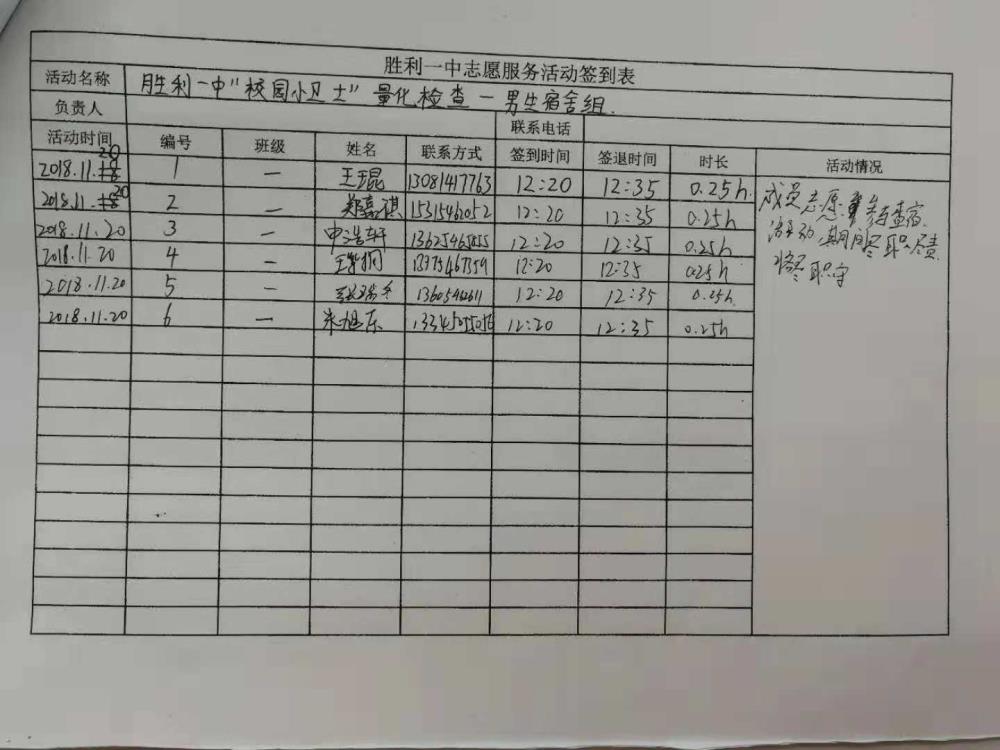 胜利一中志愿服务活动签到表
活动名称 胜利一中"校园小卫士"量化检查一男生宿舍组.
负责人 联系电话
活动时间 编号 班级 姓名 联系方式 签到时间 签退时间 时长 活动情况
2018.11.20 1 一 王琨 13081417763 12:20 12:35 0.25h.
2018.11.20 2 一 郑嘉祺 15315461052 12:20 12:35 0.25h
2018.11.20 3 一 申浩轩 13625465855 12:20 12:35 0.25h
2018.11.20 4 一 12:20 12:35 0.25h
2018.11.20 5 一 12:20 12:35 0.25h
2018.11.20 6 一 朱旭东 12:20 12:35 0.25h
成员志愿参与查宿
活动,期间尽职尽责
职守